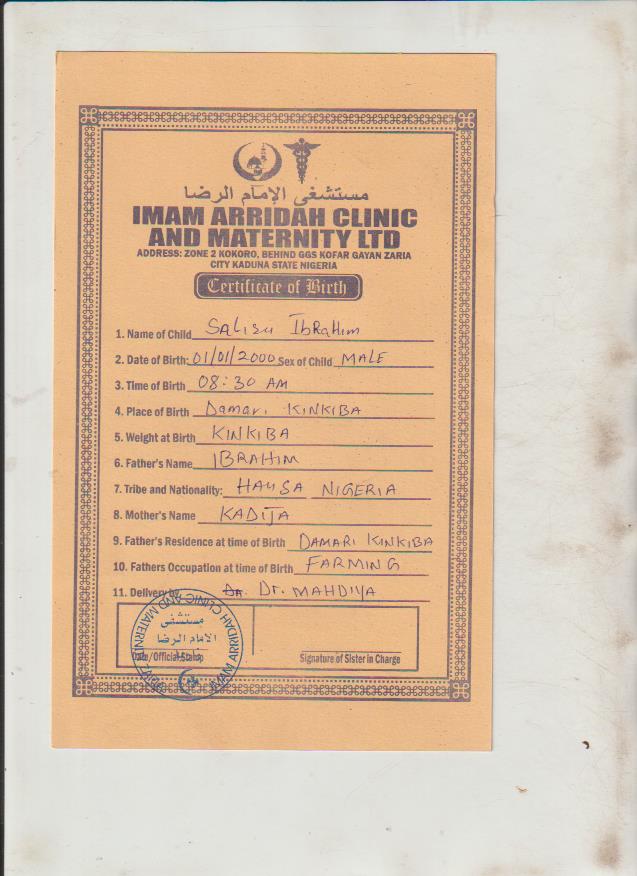 مستشفى الإمام الرضا
IMAM ARRIDAH CLINIC
AND MATERNITY LTD
ADDRESS: ZONE 2 KOKORO, BEHIND GGS KOFAR GAYAN ZARIA
CITY KADUNA STATE NIGERIA
Certificate of Birth
1. Name of Child SALISU IbRaHim
2. Date of Birth: 01/01/2000 Sex of Child MALE
3. Time of Birth 08:30 AM
4. Place of Birth Damari KINKIBA
5. Weight at Birth KINKIBA
6. Father's Name IBRAHIM
7. Tribe and Nationality: HAUSA NIGERIA
8. Mother's Name KADIJA
9. Father's Residence at time of Birth DAMARI KINKIBA
10. Fathers Occupation at time of Birth FARMING
11. Delivery by Dr. MAHDIYA
IMAM ARRIDAH CLINIC AND MATERNITY
مستشفى
الامام الرضا
Date/Official Stamp
Signature of Sister in Charge